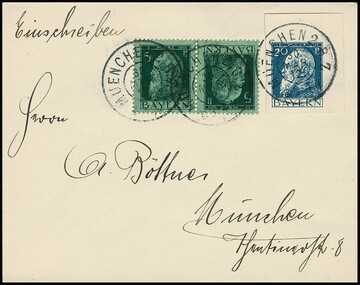 Einschreiben
MUENCHEN
5 5
BAYERN BAYERN
MUENCHEN 2 B 7
20
BAYERN
Herrn
A. Böttner
München